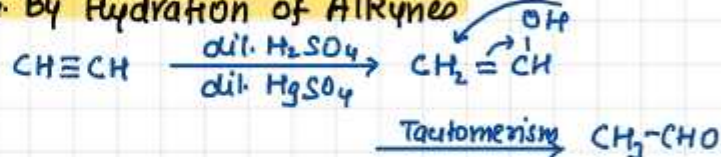 . By Hydration of Alkynes
CH≡CH dil. H₂SO₄ dil. HgSO₄ CH₂=CH OH
Tautomerism CH₃-CHO